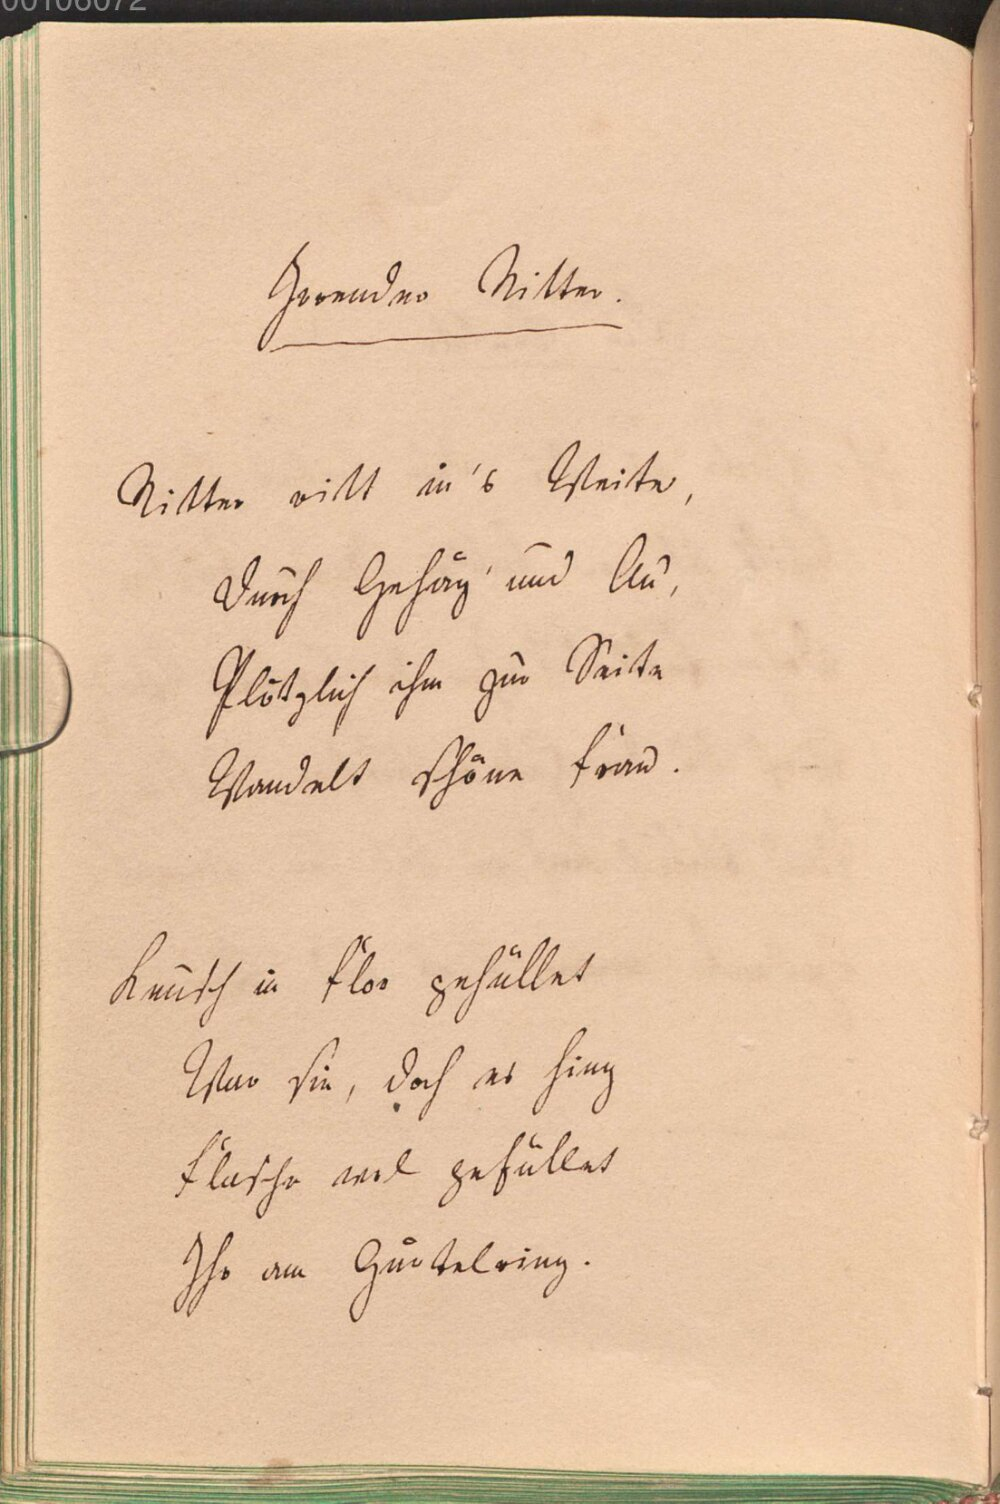 00106072
Irrender Ritter.
Ritter ritt in's Weite,
Durch Gehäg' und Au,
Plötzlich ihm zur Seite
Wandelt schöne Frau.
Keusch in Flor gehüllet
War sie, doch es hing
Flasche wol gefüllet
Ihr am Gürtelring.